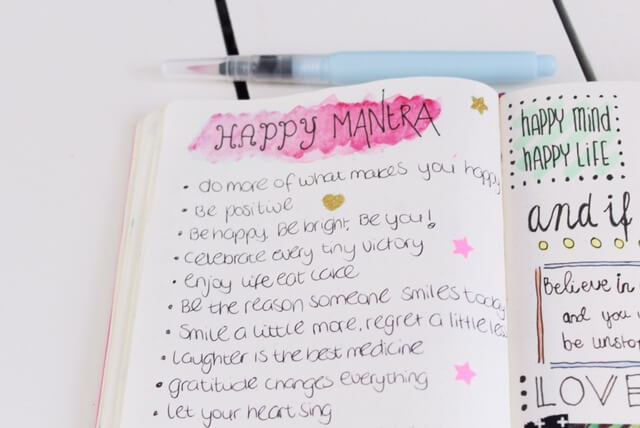 HAPPY MANTRA
• do more of what makes you happy
• Be positive
• Be happy. Be bright. Be you!
• celebrate every tiny victory
• enjoy life eat cake
• Be the reason someone smiles today
• Smile a little more, regret a little
• laughter is the best medicine
• gratitude changes everything
• let your heart sing
hAPPY mind
hAPPY LiFE
and if
Believe in
and you
be
LOVE